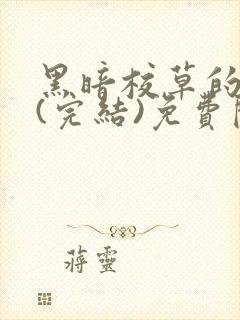 黑暗校草的
(完結)免費
蔣靈